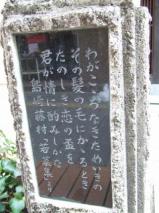 わがこゝろなきためいきの
その髪の毛にかゝるとき
たのしき恋の盃を
君が情に酌みしかな
―島崎藤村 若菜集より